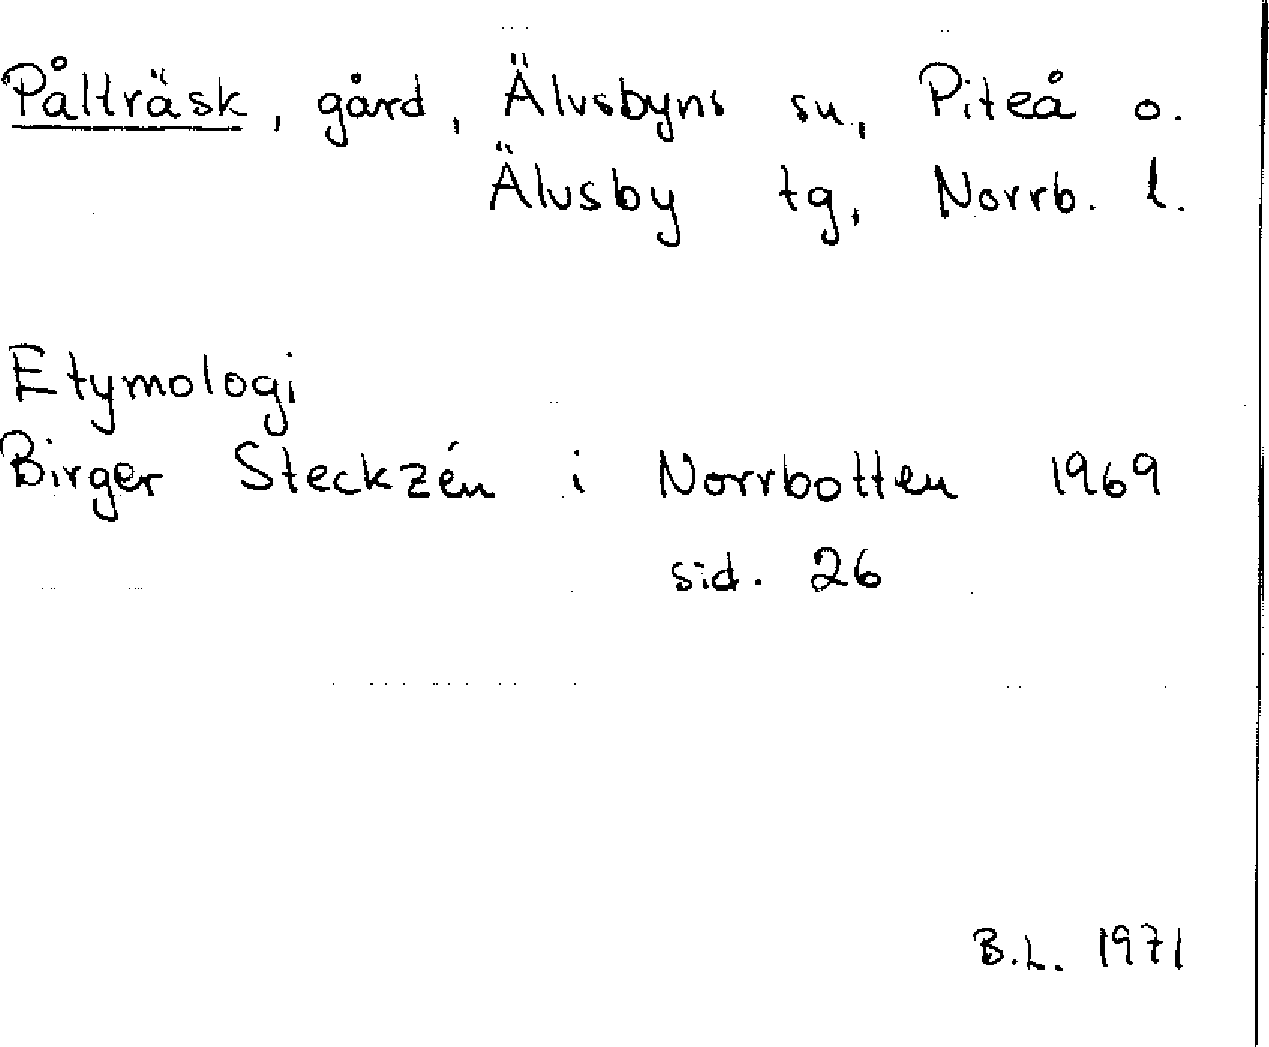 Pålträsk, gård, Älvsbyns sn, Piteå o.
Älvsby tg, Norrb. l.
Etymologi
Birger Steckzén i Norrbotten 1969
sid. 26
B.L. 1971